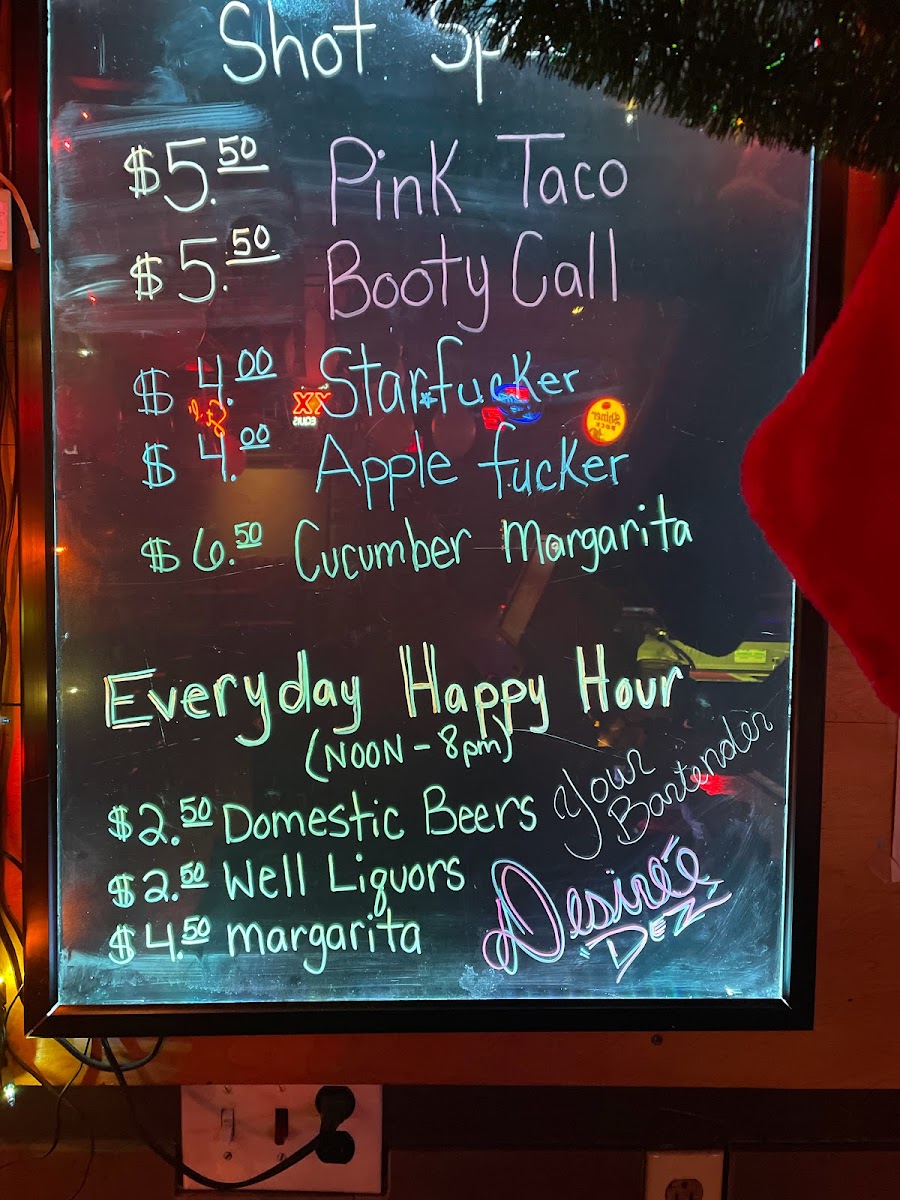 Shot Sp
$5.50 Pink Taco
$5.50 Booty Call
$4.00 Starfucker
$4.00 Apple fucker
$6.50 Cucumber Margarita
Everyday Happy Hour
(NOON - 8pm)
$2.50 Domestic Beers
$2.50 Well Liquors
$4.50 margarita
Your
Bartender
Desireé
"DEZ"
XX